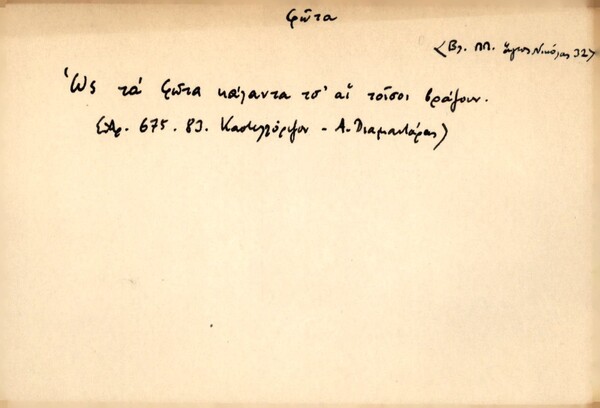 φῶτα
(Βλ. ΠΠ. Ἅγιος Νικόλας 327)
Ὡς τὰ φῶτα κάλαντα τσ' αἲ τοῖσοι βράζουν.
Ἀρ. 675. 83. Καστελλόριζον - Α. Διαμαντάρας)